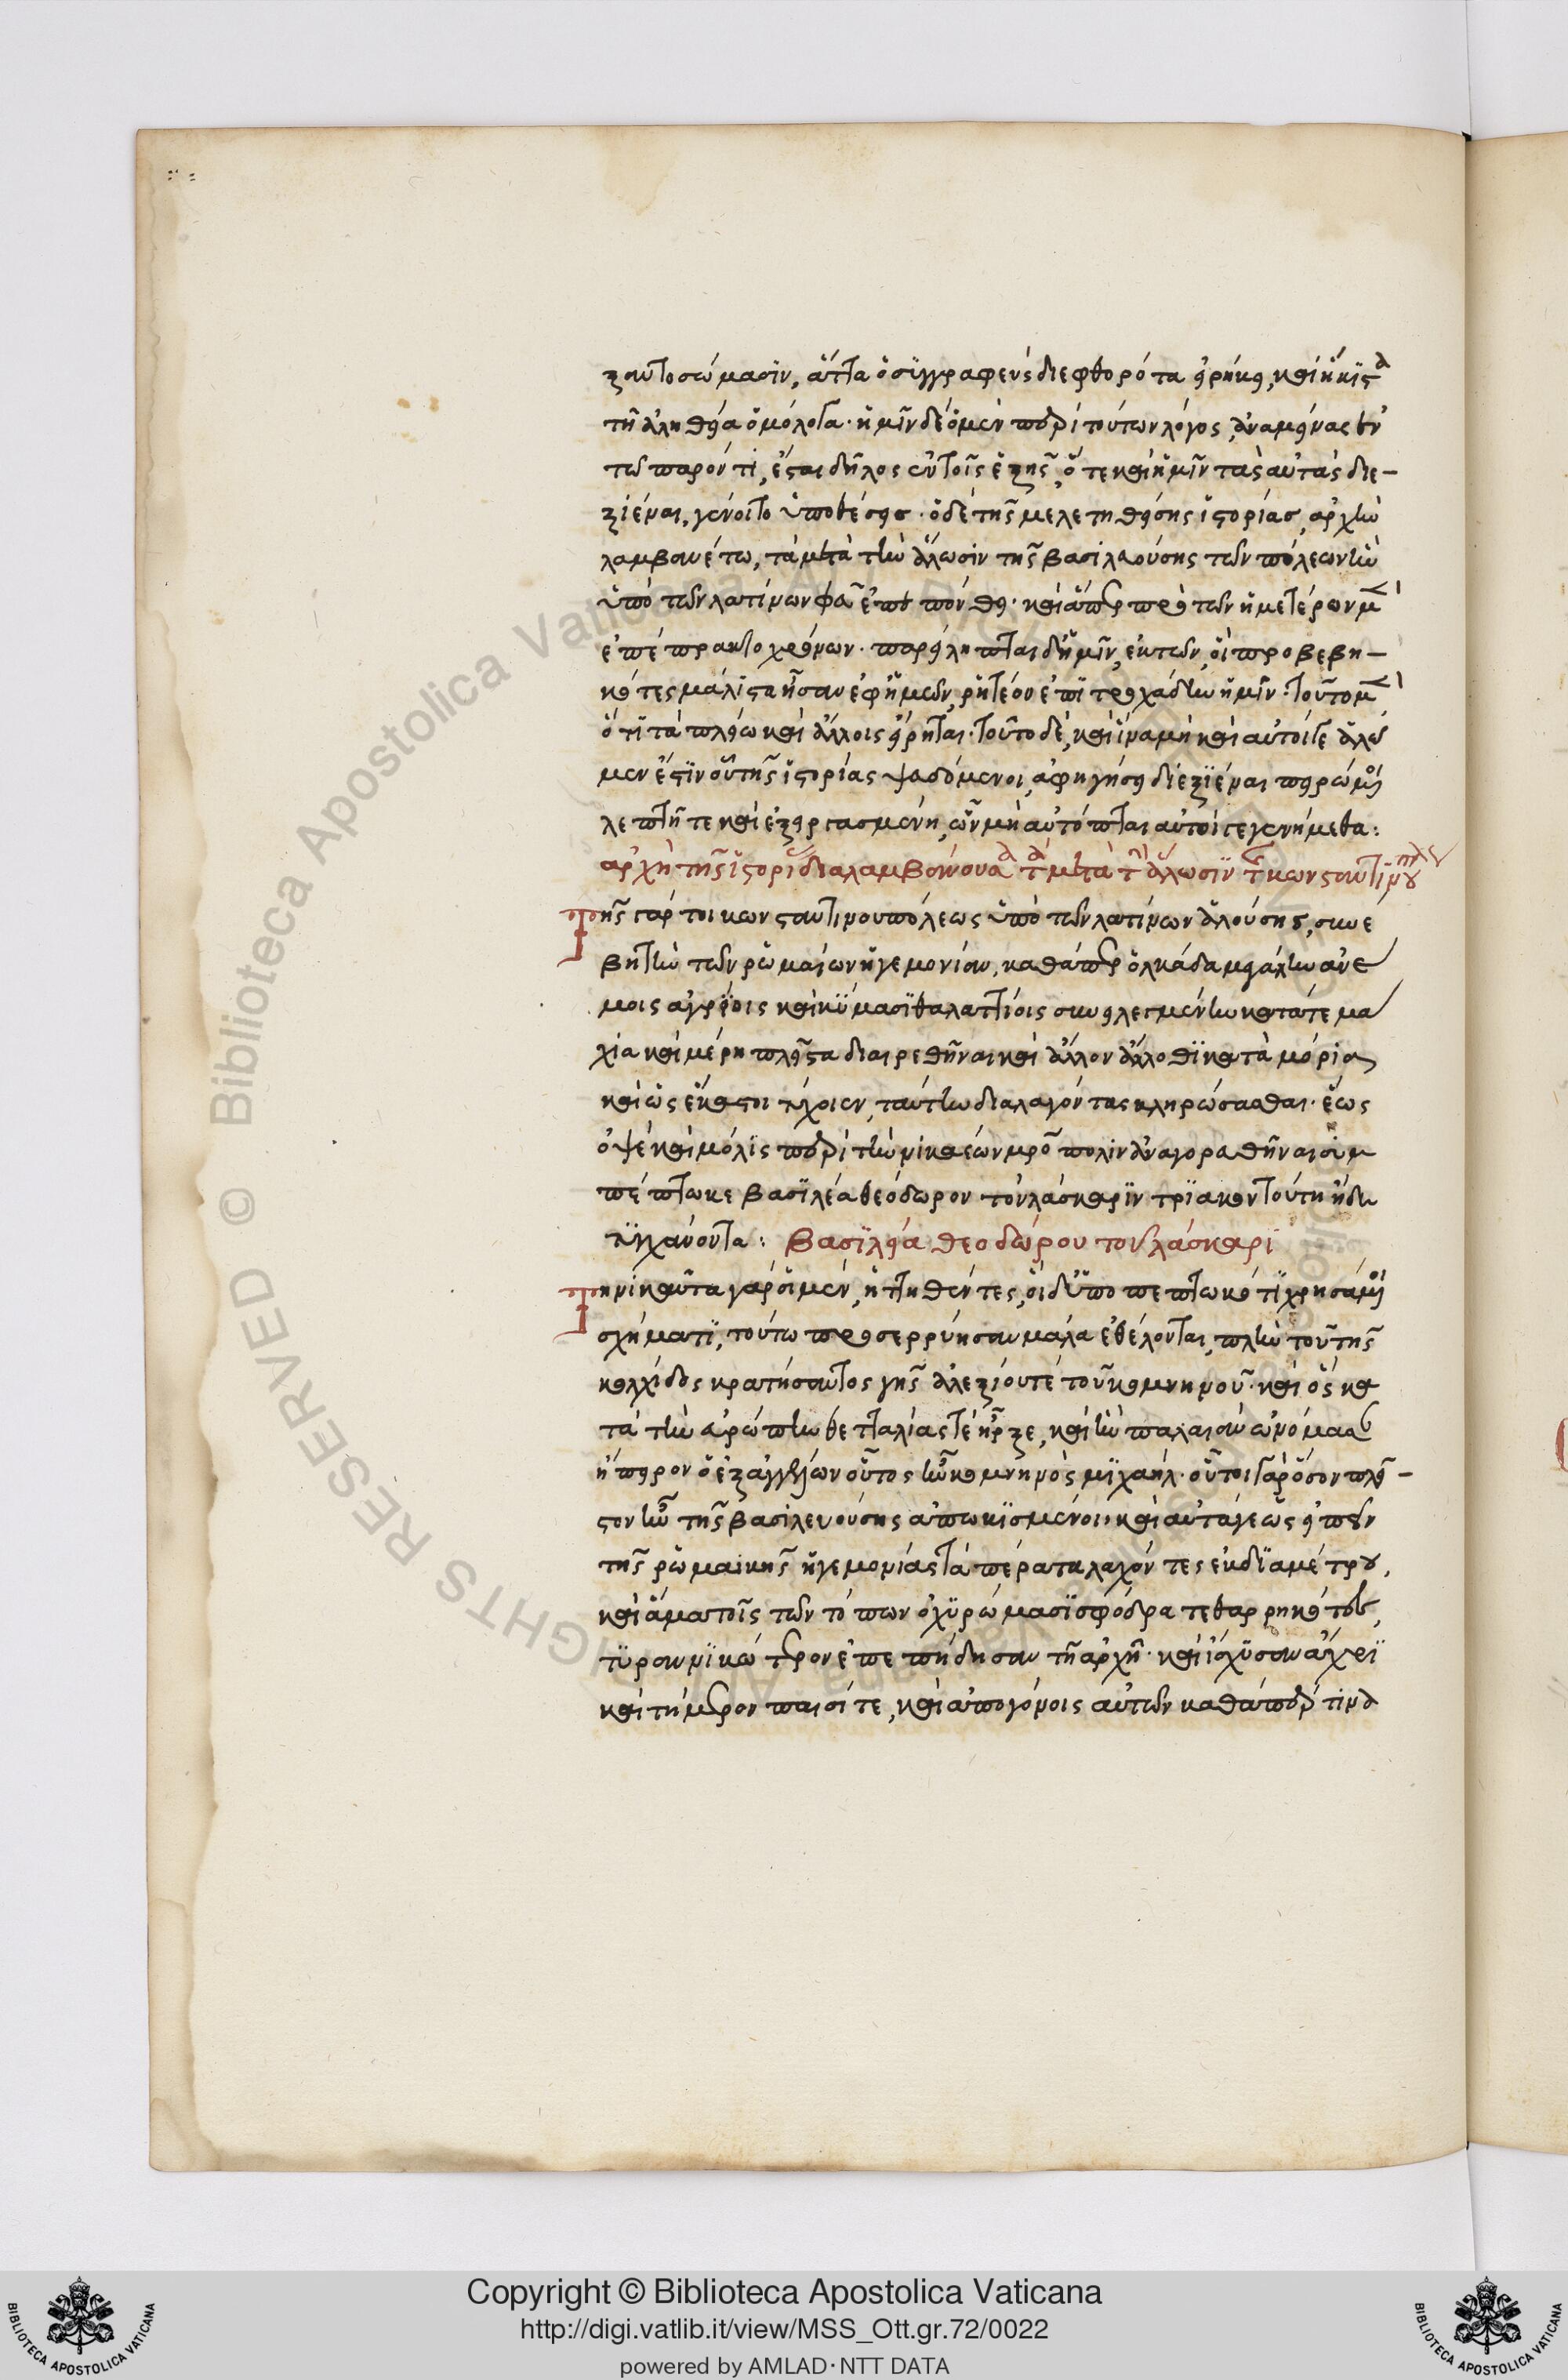 ζοντο σώμασιν, ἅττα ὁ συγγραφεὺς διεφθορότα εἰρήκει, καὶ ἥκιστα
τῇ ἀληθείᾳ ὁμόλογα· ἡμῖν δὲ ὁ μὲν περὶ τούτων λόγος ἀναμείνας ἐν
τῷ παρόντι, ἔσται δῆλος ἐν τοῖς ἑξῆς, ὅτε καὶ ἡμῖν τὰς αὐτὰς διε-
ξιέναι, γένοιτο ὑποθέσεις· ὁ δὲ τῆς μελετηθείσης ἱστορίας, ἀρχὴν
λαμβανέτω, τὰ μετὰ τὴν ἅλωσιν τῆς βασιλευούσης τῶν πόλεων ἣν
ὑπὸ τῶν λατίνων ἐπεπόνθει· καὶ ἅπερ πρὸ τῶν ἡμετέρων μὲν
ἐπέπρακτο χρόνων· παρείληπται δ' ἡμῖν, ἐκ τῶν, οἳ προβεβη-
κότες μάλιστα ἦσαν ἐφ' ἡμῶν, ῥητέον ἐπιτροχάδην ἡμῖν· τοῦτο μὲν
ὅτι τὰ πλείω καὶ ἄλλοις εἴρηται· τοῦτο δὲ, καὶ ἵνα μὴ καὶ αὐτοί γε ἁλῶ
μεν ἔστιν οὗ τῆς ἱστορίας ψευδόμενοι, ἀφηγήσει διεξιέναι πειρώμενοι
λεπτῇ τε καὶ ἐξειργασμένῃ, ὧν μὴ αὐτόπται αὐτοί γεγενήμεθα:
ἀρχὴ τῆς ἱστορίας διαλαμβάνουσα τὰ μετὰ τὴν ἅλωσιν τῆς κωνσταντίνου πόλεως
Τῆς γάρ τοι κωνσταντινουπόλεως ὑπὸ τῶν λατίνων ἁλούσης, συνέ
βη τὴν τῶν ῥωμαίων ἡγεμονίαν, καθάπερ ὁλκάδα μεγάλην ἀνέ
μοις ἀγρίοις καὶ κύμασι θαλαττίοις συνειλεγμένην κατὰ τεμά
χια καὶ μέρη πλεῖστα διαιρεθῆναι καὶ ἄλλον ἄλλοθι κατὰ μόρια
καὶ ὡς ἕκαστοι τύχοιεν, ταύτην διαλαχόντας κληρώσασθαι· ἕως
ὀψὲ καὶ μόλις περὶ τὴν νικαέων μητρόπολιν ἀναγορευθῆναι συμ
πέπτωκε βασιλέα θεόδωρον τὸν λάσκαριν τριακοντούτη ἤδη
τυγχάνοντα: Βασιλεία θεοδώρου τοῦ λάσκαρι
Τηνικαῦτα γὰρ οἱ μὲν, ἡττηθέντες, οἱ δ' ὑποπεπτωκότι χρησάμενοι
σχήματι, τούτῳ προσερρύησαν μάλα ἐθέλονται, πλὴν τοῦ τῆς
κολχίδος κρατήσαντος γῆς ἀλεξίου τε τοῦ κομνηνοῦ· καὶ ὃς κα
τὰ τὴν εὐρώπην θετταλίας τε ἦρξε, καὶ ἣν παλαιὰν ὠνόμασαν
ἤπειρον ὁ ἐξ ἀγγέλων οὗτος ἦν κομνηνὸς μιχαήλ· οὗτοι γὰρ ὅσον πλεῖ-
στον ἦν τῆς βασιλευούσης ἀπῳκισμένοι· καὶ αὐτά γε ὡς εἰπεῖν
τῆς ῥωμαικῆς ἡγεμονίας τὰ πέρατα λαχόντες ἐκ διαμέτρου,
καὶ ἅμα τοῖς τῶν τόπων ὀχυρώμασι σφόδρα τεθαρρηκότες,
τυραννικώτερον ἐπεπήδησαν τῇ ἀρχῇ· καὶ ἴσχυσαν ἄχρι
καὶ τήμερον παισί τε, καὶ ἀπογόνοις αὐτῶν καθάπερ τινὰ
Copyright © Biblioteca Apostolica Vaticana
http://digi.vatlib.it/view/MSS_Ott.gr.72/0022
powered by AMLAD·NTT DATA
BIBLIOTECA APOSTOLICA VATICANA
BIBLIOTECA APOSTOLICA VATICANA